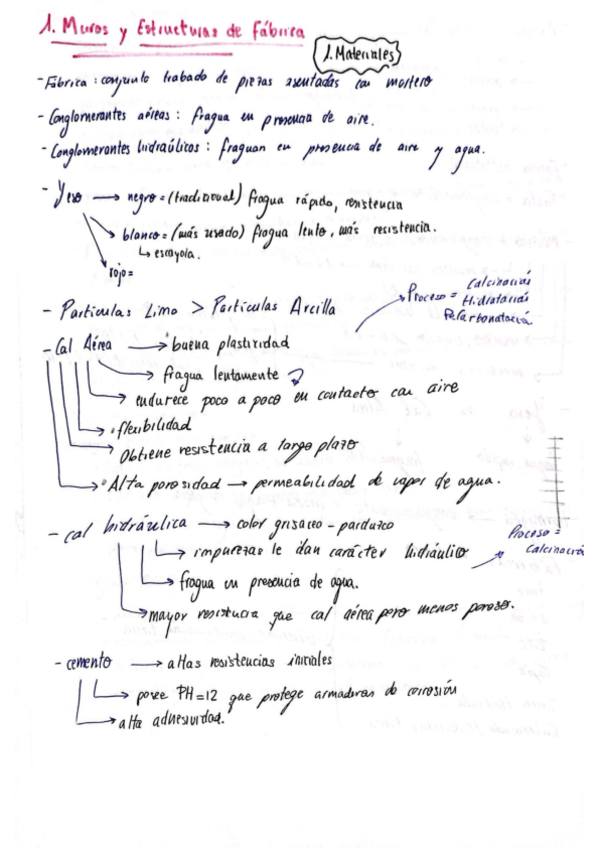 1. Muros y Estructuras de Fábrica
1. Materiales
- Fábrica : conjunto trabado de piezas asentadas con mortero
- Conglomerantes aéreas : fragua en presencia de aire.
- Conglomerantes hidraúlicos : fraguan en presencia de aire y agua.
- Yeso → negro = (tradicional) fragua rápido, resistencia
blanco = (más usado) fragua lento, más resistencia.
↳ escayola.
rojo =
- Particulas Limo > Particulas Arcilla
Proceso = Calcinación
Hidratación
- Cal Aérea → buena plasticidad
→ fragua lentamente
→ endurece poco a poco en contacto con aire
→ flexibilidad
→ Obtiene resistencia a largo plazo
→ Alta porosidad → permeabilidad de vapor de agua.
- cal hidráulica → color grisaceo - parduzco
→ impurezas le dan carácter hidráulico
Proceso =
Calcinación
→ fragua en presencia de agua.
→ mayor resistencia que cal aérea pero menos poroso.
- cemento → altas resistencias iniciales
→ posee PH = 12 que protege armaduras de corrosión
→ alta adhesividad.